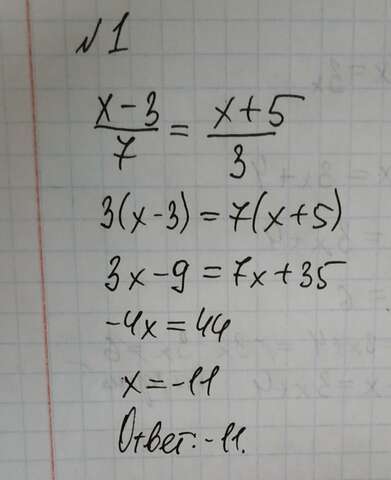 №1
x-3/7 = x+5/3
3(x-3) = 7(x+5)
3x-9 = 7x+35
-4x = 44
x = -11
Ответ: -11.